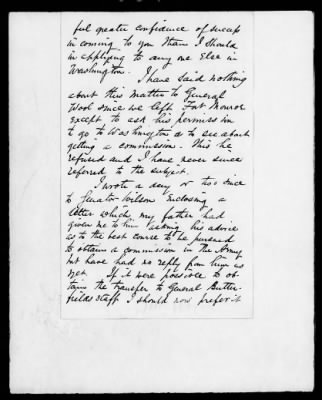 ful greater confidence of success
in coming to you than I should
in applying to any one else in
Washington.
I have said nothing
about this matter to General
Wool since we left Fort Monroe
except to ask his permission
to go to Washington to see about
getting a commission. This he
refused and I have never since
referred to the subject.
I wrote a day or two since
to Senator Wilson enclosing a
letter which my father had
given me to him asking his advice
as to the best course to be pursued
to obtain a commission in the Army
but have had no reply from him as
yet. If it were possible to ob-
tain the transfer to General Butter-
fields staff I should now prefer it